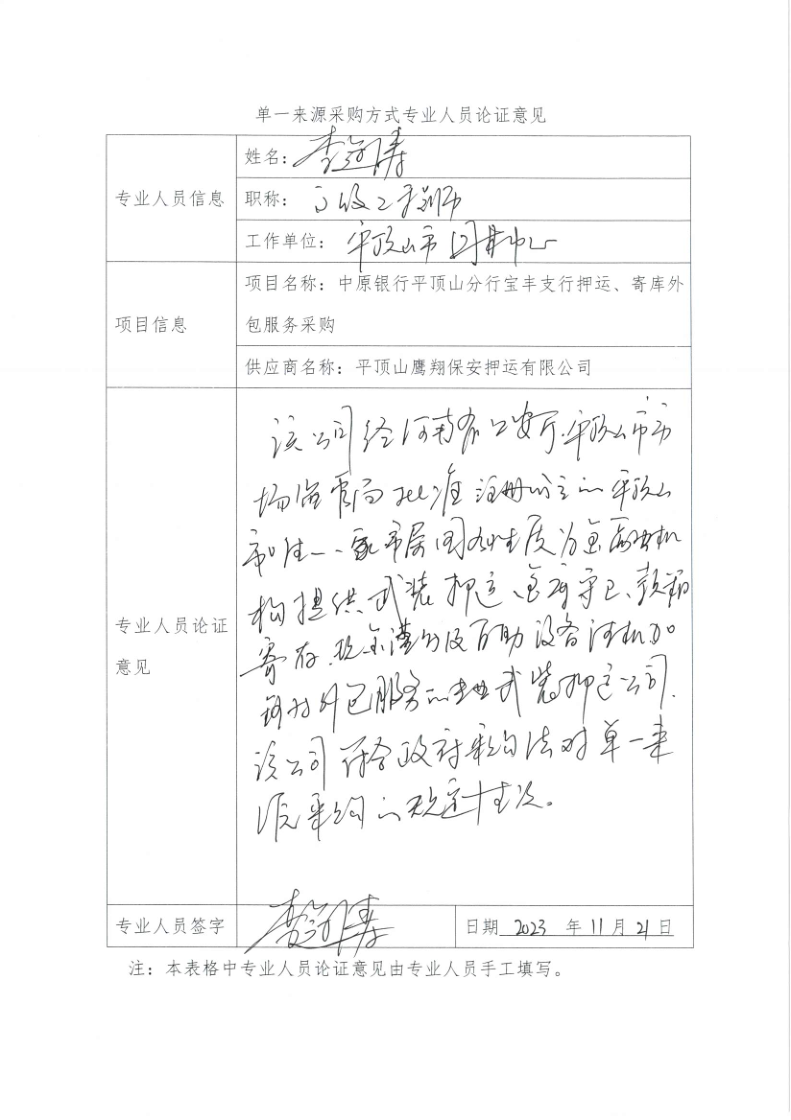 单一来源采购方式专业人员论证意见
专业人员信息
姓名：李
职称：高级工程师
工作单位：平顶山市中心
项目信息
项目名称：中原银行平顶山分行宝丰支行押运、寄库外
包服务采购
供应商名称：平顶山鹰翔保安押运有限公司
专业人员论证
意见
该公司经河南省公安厅、平顶山市市
场监管局批准注册成立的平顶山
市唯一一家市属国有性质为金融机
构提供武装押运、金库守卫、款箱
寄存、现金清分及自助设备清机加
钞外包服务的专业武装押运公司.
该公司符合政府采购法对单一来
源采购的规定情况。
专业人员签字
李
日期 2023 年 11 月 21 日
注：本表格中专业人员论证意见由专业人员手工填写。